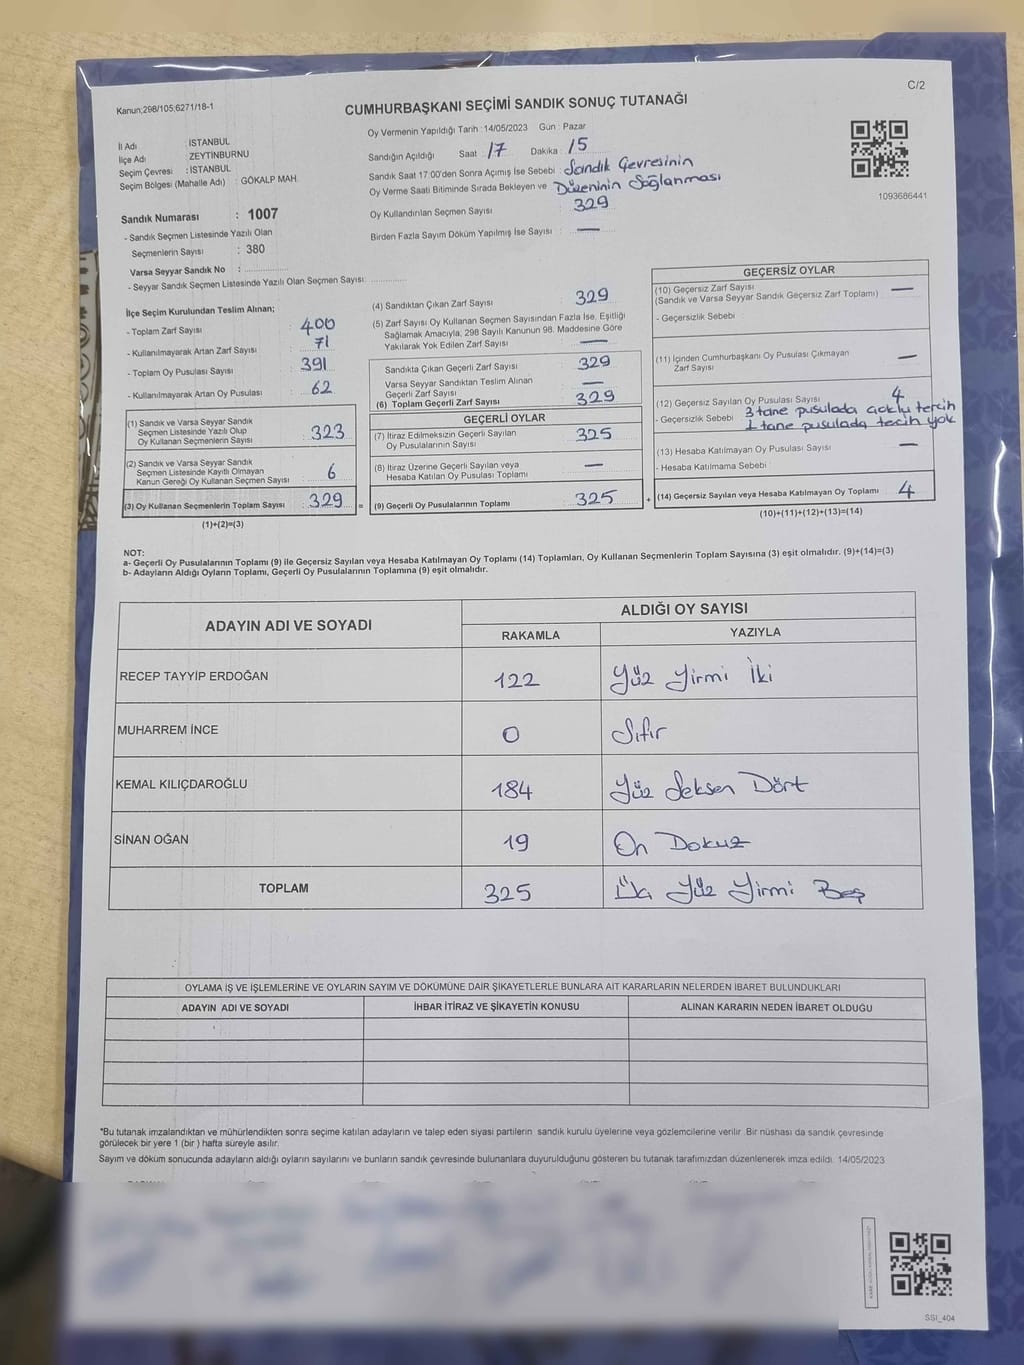 C/2
Kanun;298/105;6271/18-1
CUMHURBAŞKANI SEÇİMİ SANDIK SONUÇ TUTANAĞI
Oy Vermenin Yapıldığı Tarih : 14/05/2023 Gün : Pazar
İl Adı : İSTANBUL
İlçe Adı : ZEYTİNBURNU
Seçim Çevresi : İSTANBUL
Seçim Bölgesi (Mahalle Adı) : GÖKALP MAH.
Sandığın Açıldığı Saat 17 Dakika 15
Sandık Saat 17:00'den Sonra Açımış İse Sebebi : Sandık Çevresinin
Oy Verme Saati Bitiminde Sırada Bekleyen ve Düzeninin Sağlanması
Oy Kullandırılan Seçmen Sayısı 329
Birden Fazla Sayım Döküm Yapılmış İse Sayısı : —
1093686441
Sandık Numarası : 1007
- Sandık Seçmen Listesinde Yazılı Olan
Seçmenlerin Sayısı : 380
Varsa Seyyar Sandık No :
- Seyyar Sandık Seçmen Listesinde Yazılı Olan Seçmen Sayısı:
İlçe Seçim Kurulundan Teslim Alınan;
- Toplam Zarf Sayısı : 400
- Kullanılmayarak Artan Zarf Sayısı : 71
- Toplam Oy Pusulası Sayısı : 391
- Kullanılmayarak Artan Oy Pusulası : 62
(1) Sandık ve Varsa Seyyar Sandık
Seçmen Listesinde Yazılı Olup
Oy Kullanan Seçmenlerin Sayısı : 323
(2) Sandık ve Varsa Seyyar Sandık
Seçmen Listesinde Kayıtlı Olmayan
Kanun Gereği Oy Kullanan Seçmen Sayısı : 6
(3) Oy Kullanan Seçmenlerin Toplam Sayısı : 329
(1)+(2)=(3)
(4) Sandıktan Çıkan Zarf Sayısı 329
(5) Zarf Sayısı Oy Kullanan Seçmen Sayısından Fazla İse, Eşitliği
Sağlamak Amacıyla, 298 Sayılı Kanunun 98. Maddesine Göre
Yakılarak Yok Edilen Zarf Sayısı —
Sandıkta Çıkan Geçerli Zarf Sayısı 329
Varsa Seyyar Sandıktan Teslim Alınan
Geçerli Zarf Sayısı —
(6) Toplam Geçerli Zarf Sayısı 329
GEÇERLİ OYLAR
(7) İtiraz Edilmeksizin Geçerli Sayılan
Oy Pusulalarının Sayısı 325
(8) İtiraz Üzerine Geçerli Sayılan veya
Hesaba Katılan Oy Pusulası Toplamı —
= (9) Geçerli Oy Pusulalarının Toplamı 325
GEÇERSİZ OYLAR
(10) Geçersiz Zarf Sayısı —
(Sandık ve Varsa Seyyar Sandık Geçersiz Zarf Toplamı)
- Geçersizlik Sebebi :
(11) İçinden Cumhurbaşkanı Oy Pusulası Çıkmayan
Zarf Sayısı —
(12) Geçersiz Sayılan Oy Pusulası Sayısı 4
- Geçersizlik Sebebi : 3 tane pusulada çoklu tercih
1 tane pusulada tercih yok
(13) Hesaba Katılmayan Oy Pusulası Sayısı —
- Hesaba Katılmama Sebebi :
+ (14) Geçersiz Sayılan veya Hesaba Katılmayan Oy Toplamı 4
(10)+(11)+(12)+(13)=(14)
NOT:
a- Geçerli Oy Pusulalarının Toplamı (9) ile Geçersiz Sayılan veya Hesaba Katılmayan Oy Toplamı (14) Toplamları, Oy Kullanan Seçmenlerin Toplam Sayısına (3) eşit olmalıdır. (9)+(14)=(3)
b- Adayların Aldığı Oyların Toplamı, Geçerli Oy Pusulalarının Toplamına (9) eşit olmalıdır.
ADAYIN ADI VE SOYADI ALDIĞI OY SAYISI
RAKAMLA YAZIYLA
RECEP TAYYİP ERDOĞAN 122 Yüz Yirmi İki
MUHARREM İNCE 0 Sıfır
KEMAL KILIÇDAROĞLU 184 Yüz Seksen Dört
SİNAN OĞAN 19 On Dokuz
TOPLAM 325 Üç Yüz Yirmi Beş
OYLAMA İŞ VE İŞLEMLERİNE VE OYLARIN SAYIM VE DÖKÜMÜNE DAİR ŞİKAYETLERLE BUNLARA AİT KARARLARIN NELERDEN İBARET BULUNDUKLARI
ADAYIN ADI VE SOYADI İHBAR İTİRAZ VE ŞİKAYETİN KONUSU ALINAN KARARIN NEDEN İBARET OLDUĞU
*Bu tutanak imzalandıktan ve mühürlendikten sonra seçime katılan adayların ve talep eden siyasi partilerin sandık kurulu üyelerine veya gözlemcilerine verilir .Bir nüshası da sandık çevresinde
görülecek bir yere 1 (bir ) hafta süreyle asılır.
Sayım ve döküm sonucunda adayların aldığı oyların sayılarını ve bunların sandık çevresinde bulunanlara duyurulduğunu gösteren bu tutanak tarafımızdan düzenlenerek imza edildi. 14/05/2023
SSI_404